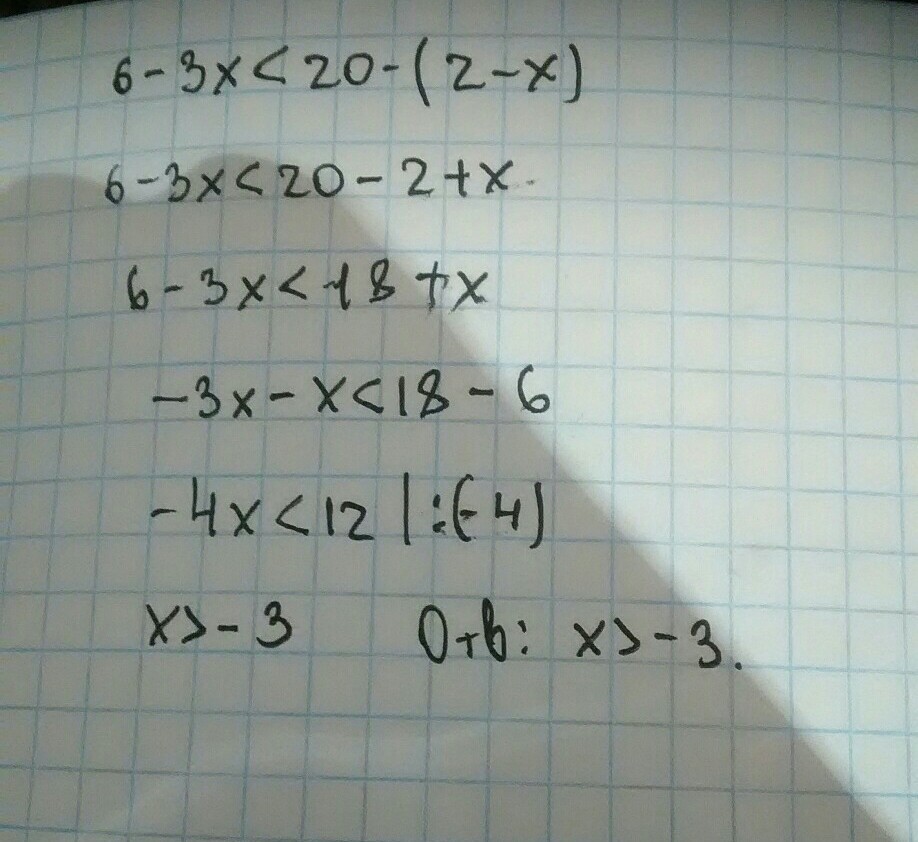 6-3x<20-(2-x)
6-3x<20-2+x
6-3x<18+x
-3x-x<18-6
-4x<12 |:(-4)
x>-3 Отв: x>-3.